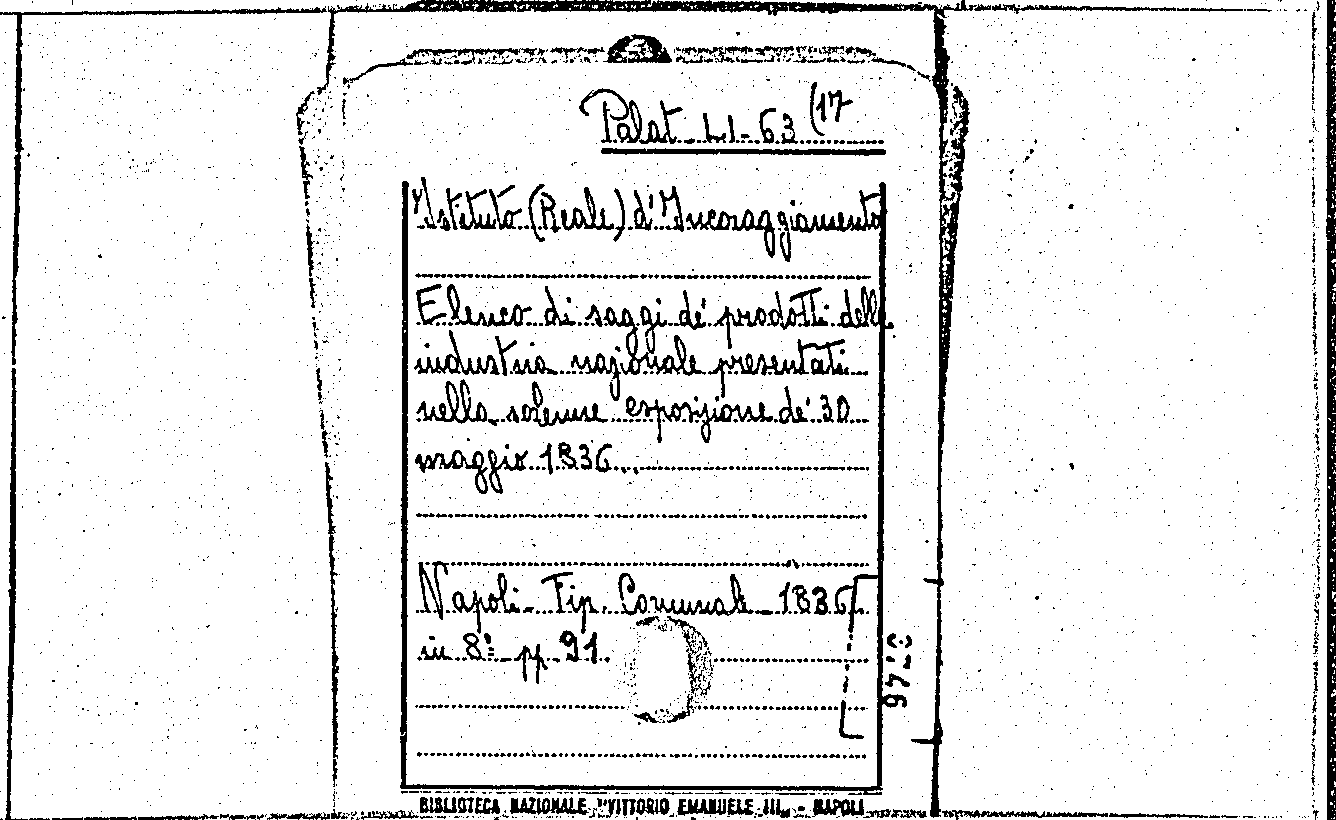 Palat. LI-63 (17
Istituto (Reale) d'Incoraggiamento
Elenco di saggi de' prodotti della
industria nazionale presentati
nella solenne esposizione de' 30
maggio 1836...
Napoli - Tip. Comunale - 1836
in 8° - pp. 91.
BIBLIOTECA NAZIONALE "VITTORIO EMANUELE III" - NAPOLI